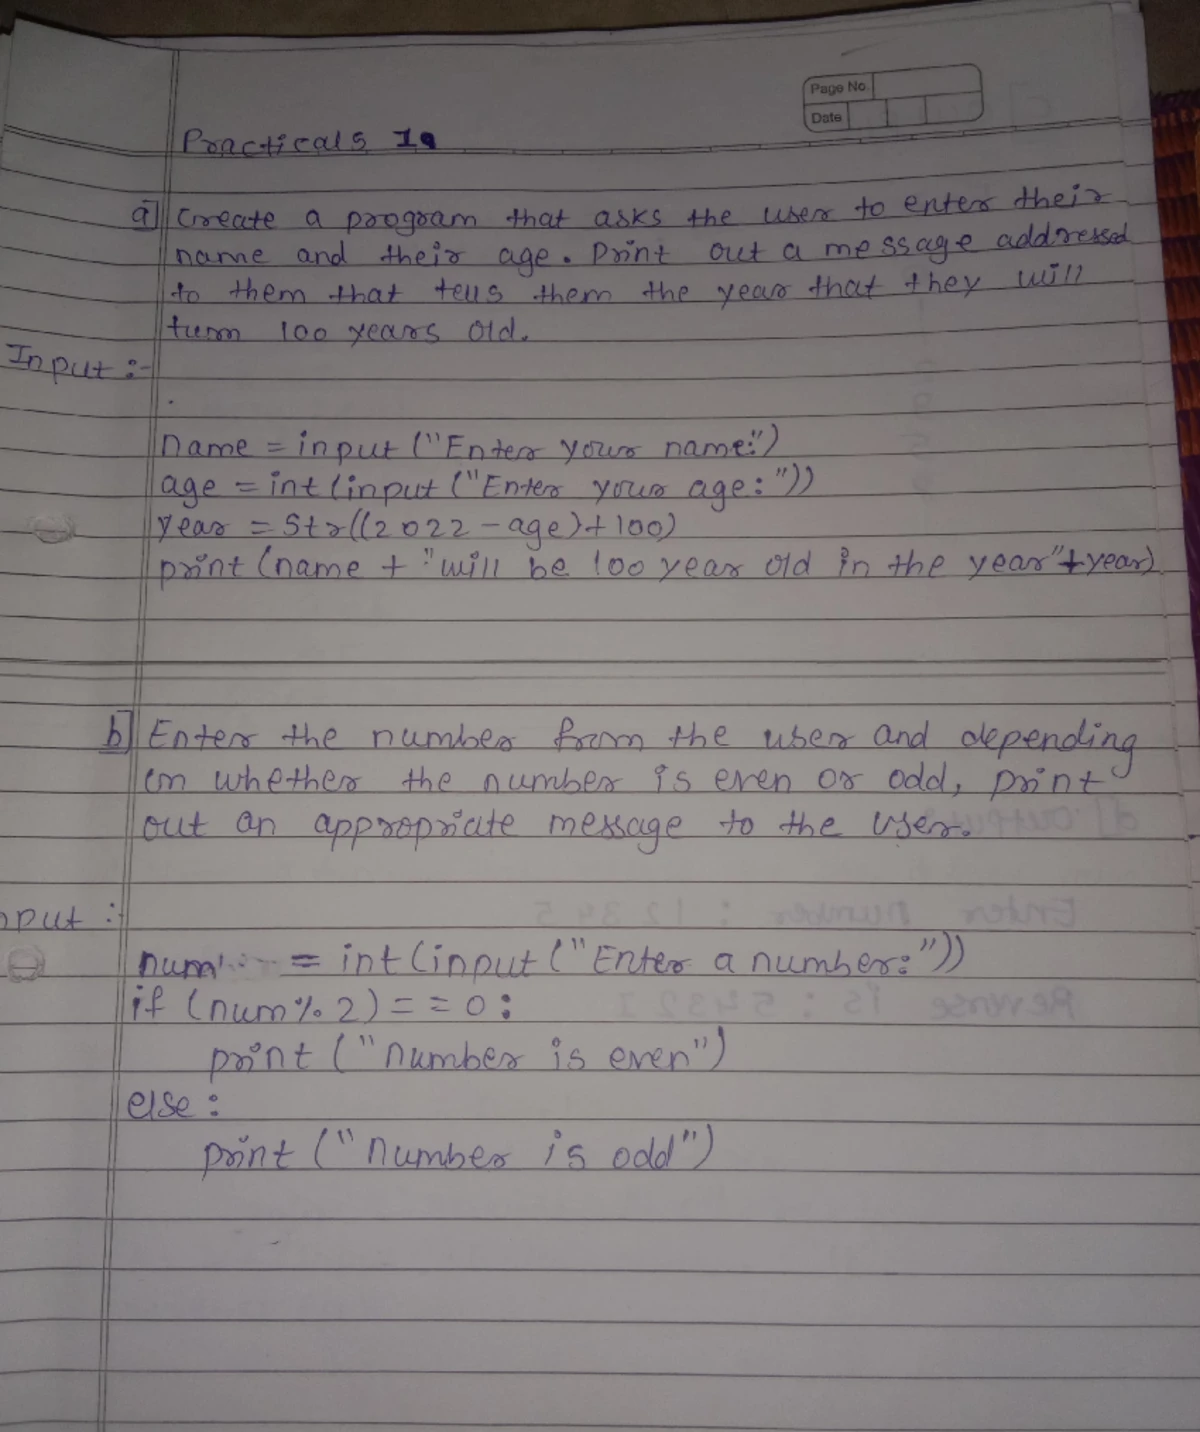 Page No.
Date
Practicals 1a
a] Create a program that asks the user to enter their
name and their age. Print out a message addressed
to them that tells them the year that they will
turn 100 years old.
Input :-
name = input ("Enter your name:")
age = int (input ("Enter your age: "))
year = Str((2022 - age) + 100)
print (name + "will be 100 year old in the year" + year)
b] Enter the number from the user and depending
on whether the number is even or odd, print
out an appropriate message to the user.
nput :-
num = int (input ("Enter a number: "))
if (num % 2) = = 0 :
print ("number is even")
else :
print ("number is odd")